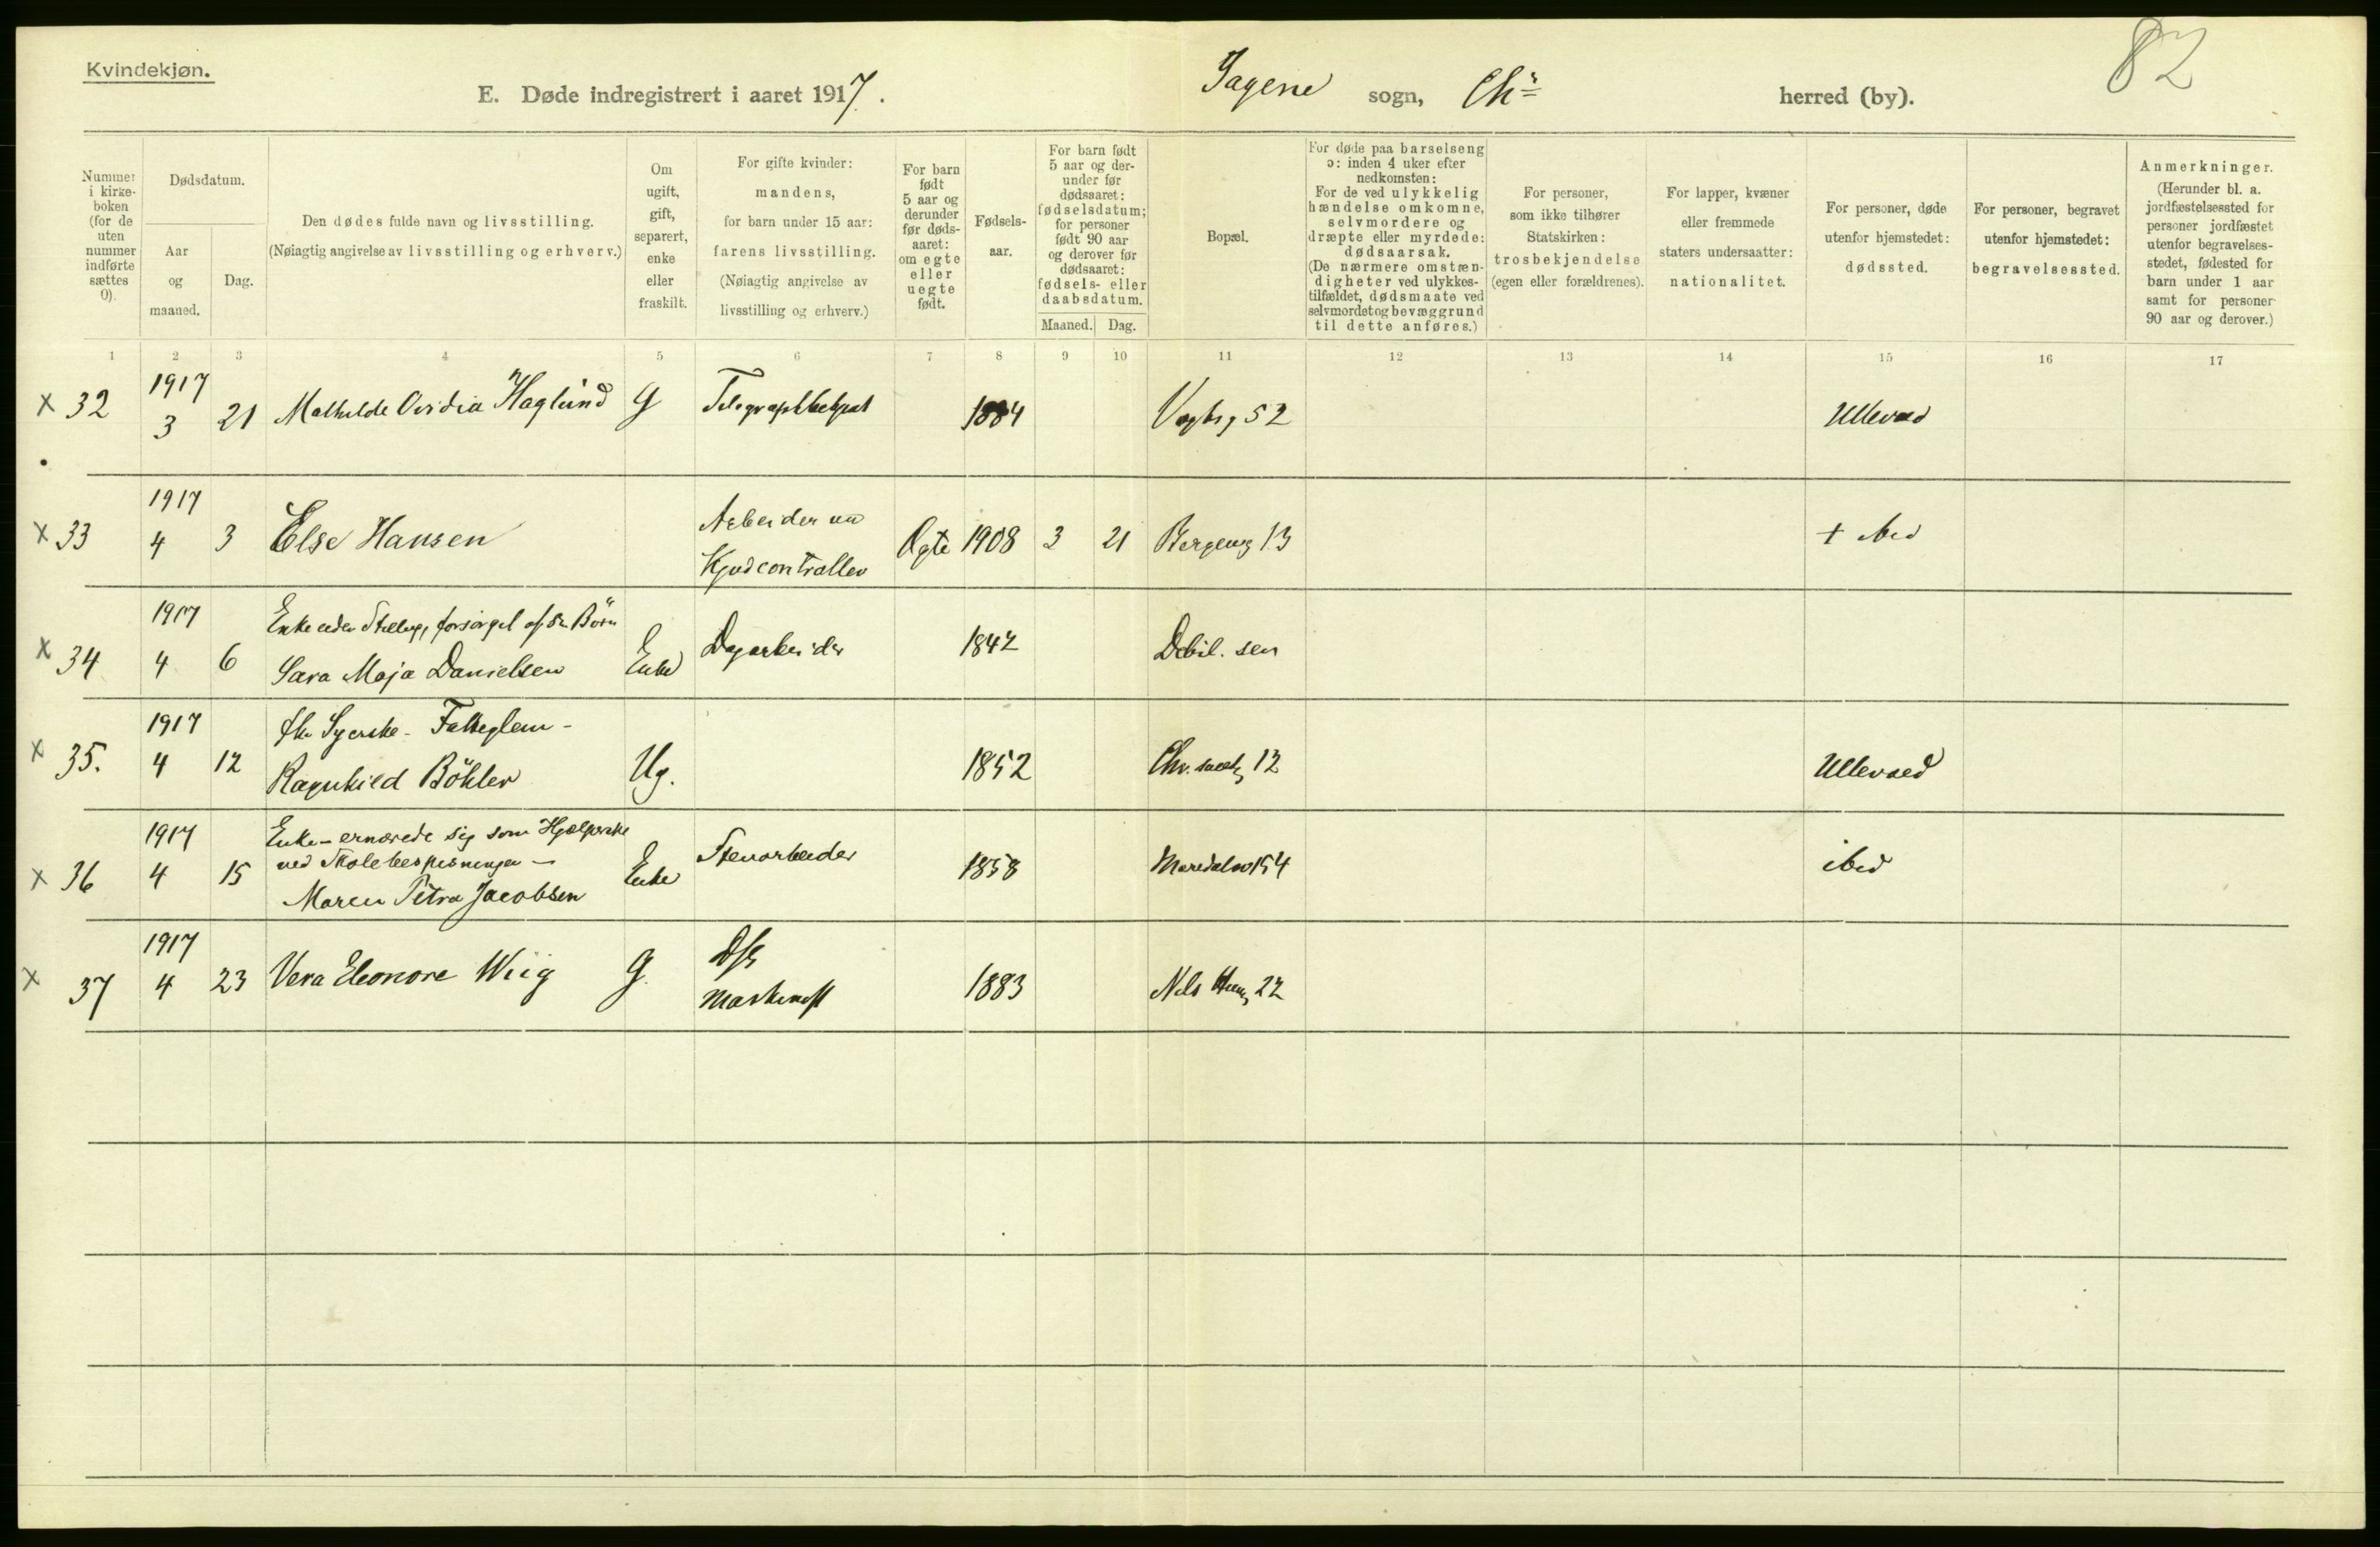 Kvindekjøn.
82
E. Døde indregistrert i aaret 1917.
Sagene sogn, Chr herred (by).
Nummer i kirkeboken (for de uten nummer indførte sættes 0).
Dødsdatum.
Aar og maaned.
Dag.
Den dødes fulde navn og livsstilling.
(Nøiagtig angivelse av livsstilling og erhverv.)
Om ugift, gift, separert, enke eller fraskilt.
For gifte kvinder: mandens, for barn under 15 aar: farens livsstilling.
(Nøiagtig angivelse av livsstilling og erhverv.)
For barn født 5 aar og derunder før dødsaaret: om egte eller uegte født.
Fødselsaar.
For barn født 5 aar og derunder før dødsaaret: fødselsdatum; for personer født 90 aar og derover før dødsaaret: fødsels- eller daabsdatum.
Maaned. Dag.
Bopæl.
For døde paa barselseng ɔ: inden 4 uker efter nedkomsten:
For de ved ulykkelig hændelse omkomne, selvmordere og dræpte eller myrdede: dødsaarsak.
(De nærmere omstændigheter ved ulykkestilfældet, dødsmaate ved selvmordet og bevæggrund til dette anføres.)
For personer, som ikke tilhører Statskirken: trosbekjendelse (egen eller forældrenes).
For lapper, kvæner eller fremmede staters undersaatter: nationalitet.
For personer, døde utenfor hjemstedet: dødssted.
For personer, begravet utenfor hjemstedet: begravelsessted.
Anmerkninger.
(Herunder bl. a. jordfæstelsessted for personer jordfæstet utenfor begravelsesstedet, fødested for barn under 1 aar samt for personer 90 aar og derover.)
1 2 3 4 5 6 7 8 9 10 11 12 13 14 15 16 17
1917
x 32 3 21 Mathilde Ovidia Haglund G 1884 52 Ullevaal
1917
x 33 4 3 Else Hansen Arbeider Ægte 1908 3 21 Bergensg 13 + ibid
1917 Enke uden Stilling, forsörget af sine Börn
x 34 4 6 Sara Maja Danielsen Enke Dagarbeider 1842 Debil. sen
1917 fhv Syerske -
x 35. 4 12 Ragnhild Böhler Ug. 1852 12 Ullevaal
1917 Enke - ernærede sig som Hjælperske
ved Skolebespisningen -
x 36 4 15 Maren Petra Jacobsen Enke Stenarbeider 1858 Maridalsv 154 ibid
1917
x 37 4 23 Vera Eleonore Wiig G. Maskinist 1883 Nils 22